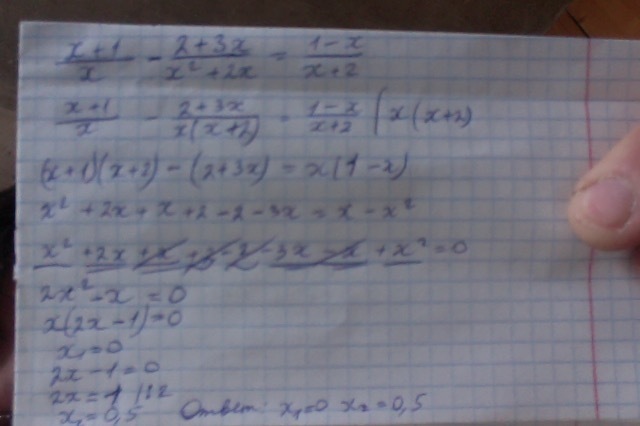 (x+1)/x - (2+3x)/(x²+2x) = (1-x)/(x+2)
(x+1)/x - (2+3x)/(x(x+2)) = (1-x)/(x+2) | x(x+2)
(x+1)(x+2)-(2+3x)=x(1-x)
x²+2x+x+2-2-3x=x-x²
x²+2x+x+2-2-3x-x+x²=0
2x²-x=0
x(2x-1)=0
x₁=0
2x-1=0
2x=1 |:2
x₂=0,5 Ответ: x₁=0 x₂=0,5